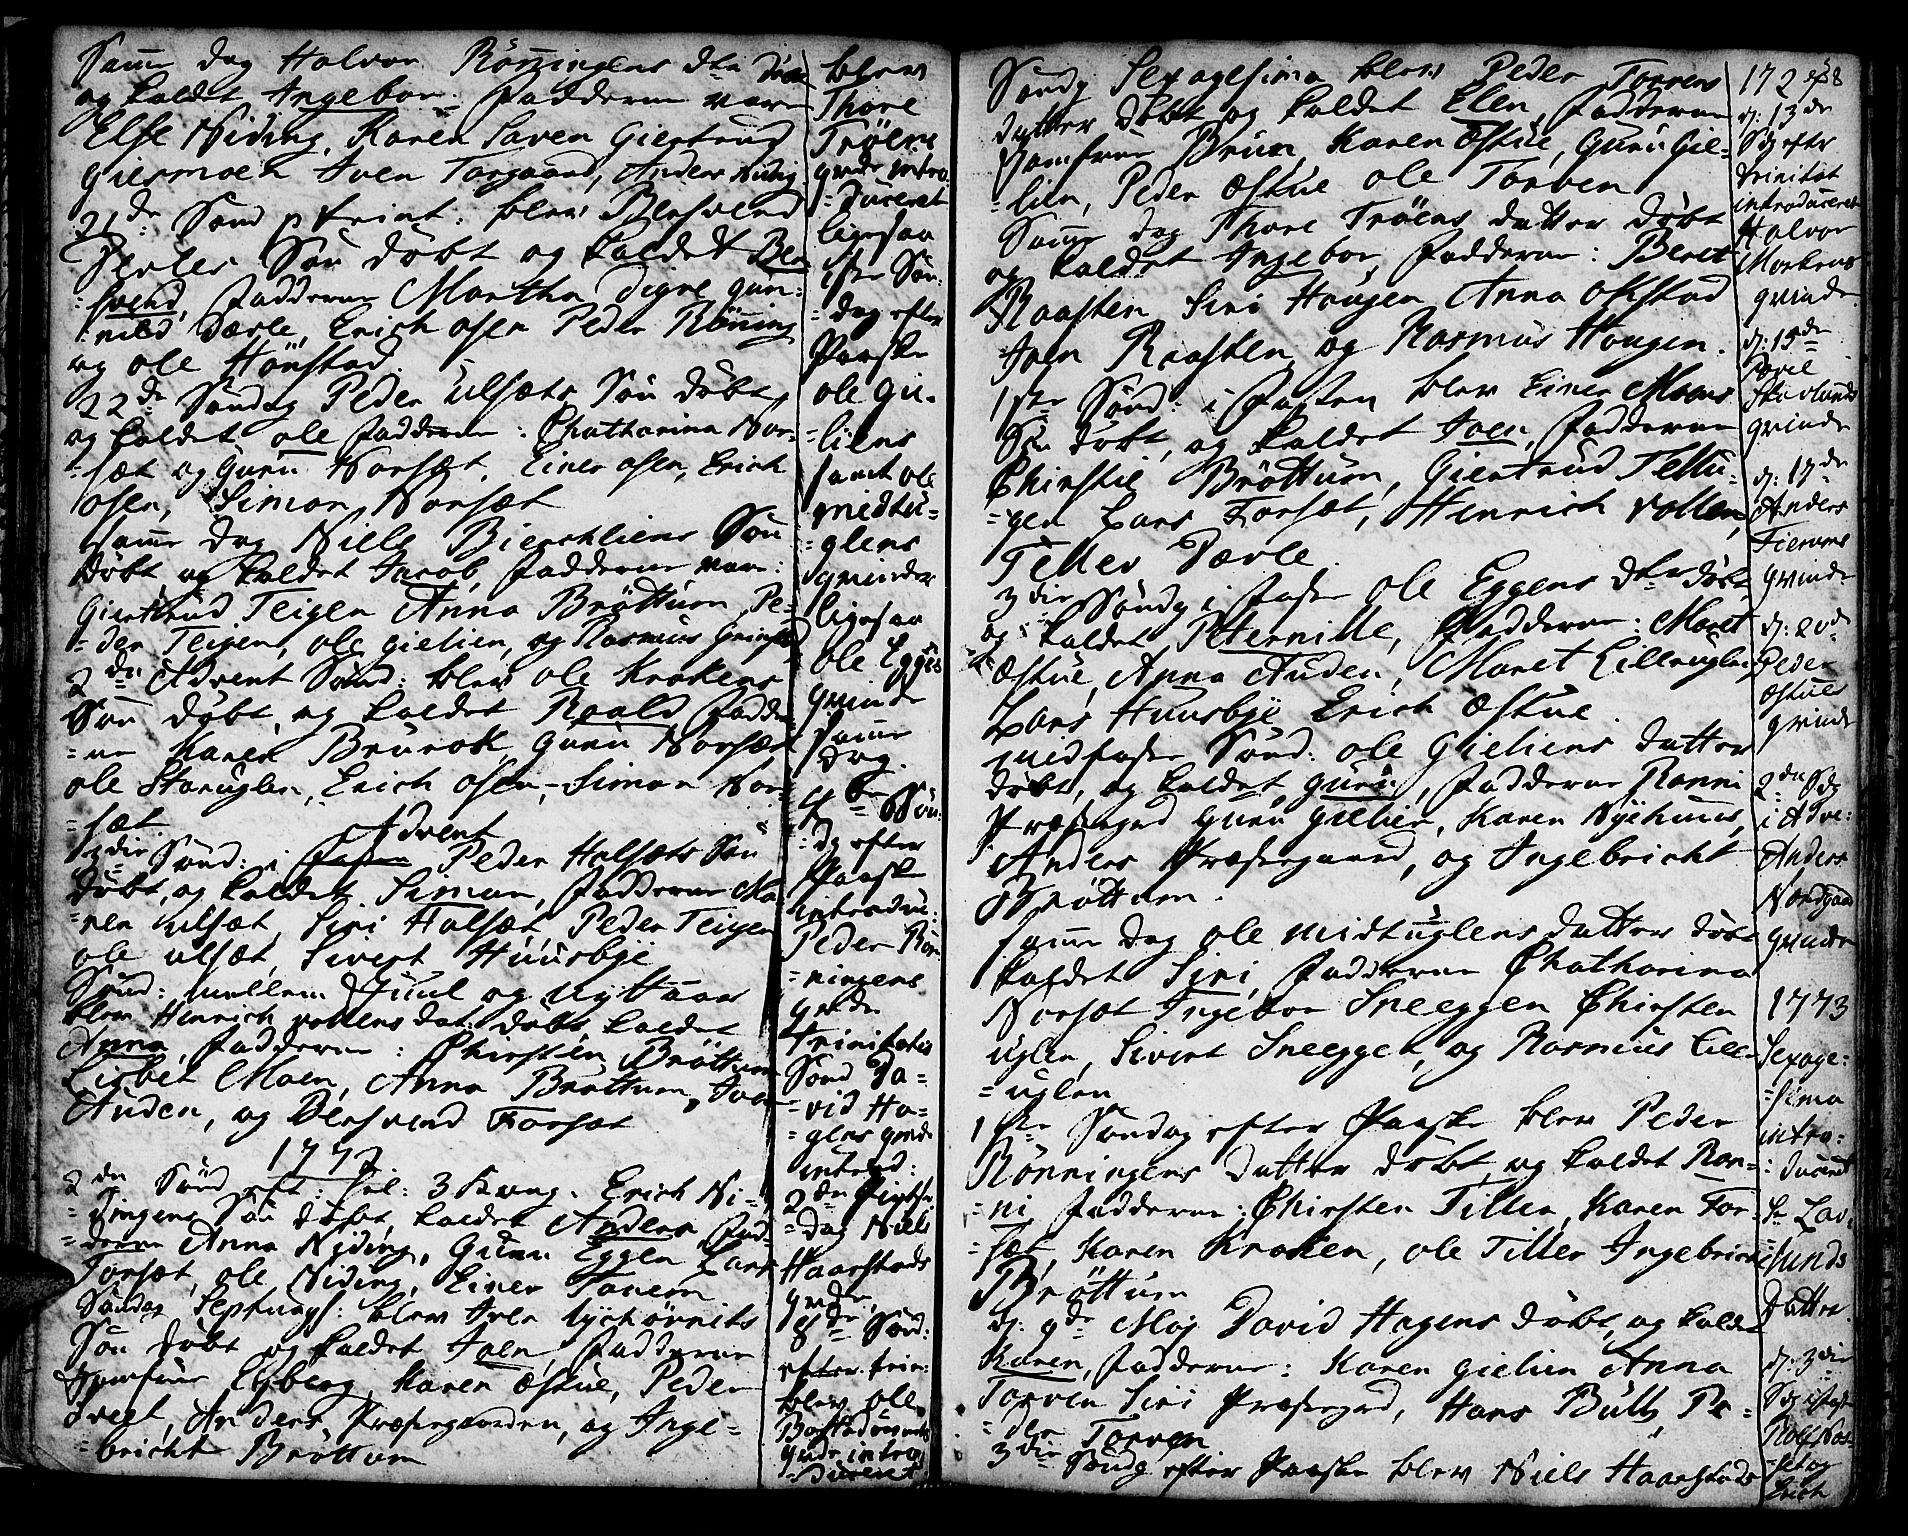 Samme dag Halvor Rönningens dtr döbt
og kaldet Ingebor. Fadderne vare
Else Niding, Karen Saven Giertrud
Giermoen Iven Torgaard, Anders Niding
21de Sönd p trint: blev Bersvend
Sexles Sön döbt og kaldet Ber
=svend, Fadderne Martha Digre gun=
=nild Særle, Erich Osen Peder Rönning
og ole Hönstad.
22de Söndag Peder Ulsæts Sön döbt,
og kaldet ole Fadderne: Chatharina Nor=
=sæt og Guru Norsæt, Einer Osen, Erich
Osen, Simon Norsæt
Samme dag Niels Bierchliens Sön
döbt og kaldet Jacob, Fadderne vare:
Giertrud Teigen Anna Bröttum, Pe=
=der Teigen, ole gielien, og Rasmus
2den Advent Sönd: blev ole Krokens
Sön döbt, og kaldet Roald, Fadder
=ne Karen Brurok, Guru Norsæt
ole Storuglen, Erich Osen, Simon Nor=
=sæt
3die Sönd: i Advent Peder Halsæts Sön
döbt, og kaldet Simon, Fadderne Ma=
=ren Ulsæt, Siri Halsæt, Peder Teigen
ole Ulsæt, Sivert Huusbye
Sönd: mellem Juul og Nyttaar
blev Hinrich vollens dat: döbt kaldet
Anna, Fadderne: Chirsten Bröttum
Lisbet Moen, Anna Bröttum, Ivar
Auden, og Bersvend Forsæt
1773.
2den Sönd eft: hel: 3 Kong. Erich Ni=
=dingens Sön döbt, kaldet Anders, Fad=
=derne Anna Niding, Guru Eggen Lars
Forsæt, ole Niding, Einer Tanem
Söndag Septuags: blev Iver
Sön döbt og kaldet Joen, Fadderne
Jomfrue Egberg, Karen Østue, Peder
Anders Præstegaarden, og Inge=
=bricht Bröttum

blev
Thore
Tröens
qvinde intro
=duceret
ligesaa
1ste Sön
=dag efter
Paaske
ole Gi=
=liens
samt ole
midtu=
=glens
qvinder
ligesaa
ole Eggens
qvinde
samme
dag.
4de Sön
=dg efter
Paaske
introdu:
Peder Rön
=ningens
qvde
trinitatis
Sönd Da=
=vid Ha=
=gens qvde
introd:
2den Pintse
=dag Niels
Haarstads
qvde
8de Sönd:
efter trin:
blev ole
qvde intro
=duceret

Söndg Sexagesima blev Peder Torvens
datter döbt og kaldet Elen, Fadderne
Jomfrue Brun, Karen Østue, Guru Gie=
=lien, Peder Østue ole Torven
Samme dag Thore Tröens datter döbt
og kaldet Ingebor, Fadderne: Beret
Raasten, Siri Haugen Anna Okstad
Joen Raasten, og Rasmus Haugen.
1ste Sönd: i Fasten blev Einer Moens
Sön döbt, og kaldet Joen, Fadderne
Chirstie Bröttum, Giertrud Tellu=
=gen Lars Forsæt, Hinrich vollen,
Teller Særle.
3die Söndg i Faste ole Eggens dtr döbt,
og kaldet Peternille, Fadderne: Maret
Østue, Anna Auden, Maret Lilleuglen
Lars Huusbye Erich Østue.
midfaste Sönd: ole Gieliens datter
döbt, og kaldet guru, Fadderne Ronni
Præstegrd Guru Gielien, Karen Nyehuus,
Anders Præstegaard, og Ingebricht
Bröttum.
samme dag ole midtuglens datter döbt
kaldet Siri, Fadderne Chatharina
Norsæt Ingebor Sneeggen Chirsten
uglen, Sivert Sneeggen, og Rasmus Lille=
=uglen
1ste Söndag efter Paaske blev Peder
Rönningens datter döbt og kaldet Ron=
=ni, Fadderne: Chirsten Tiller, Karen For=
=sæt, Karen Kroken, ole Tiller Ingebricht
Bröttum
d: 9de Maj David Hagens döbt og kaldet
Karen, Fadderne: Karen gielien Anna
Torven Siri Præstegrd, Hans Bull, Pe=
=der Torven
3die Söndg efter Paaske blev Niels Haarstads

172
d: 13de
Sög efter
trinitat
introduceret
Halvor
Morkens
qvinde
d: 15de
qvinde
d: 17de
Anders
qvinde
d: 20de
Peder
Østues
qvinde
2den Sdg
i Adve:
Anders
Nordgaa
qvinde
1773
Sexage=
=sima
intro=
=duceret
=lunds
Datter
d: 3die
=set og
Erich